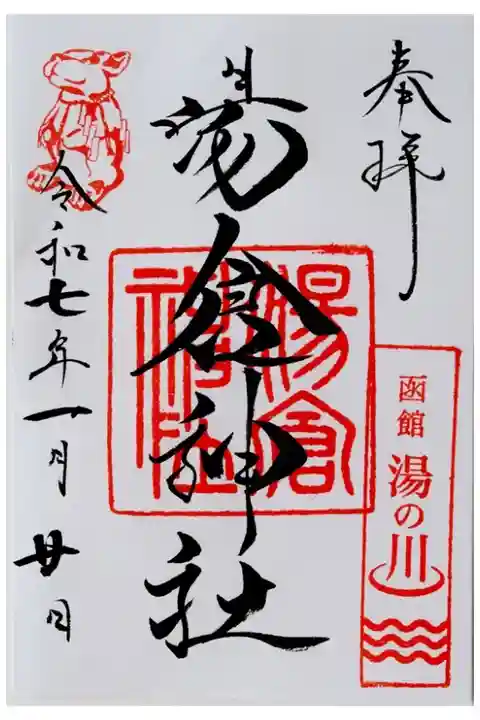 奉拝
函館 湯の川
湯倉神社
湯倉神社
令和七年一月廿日